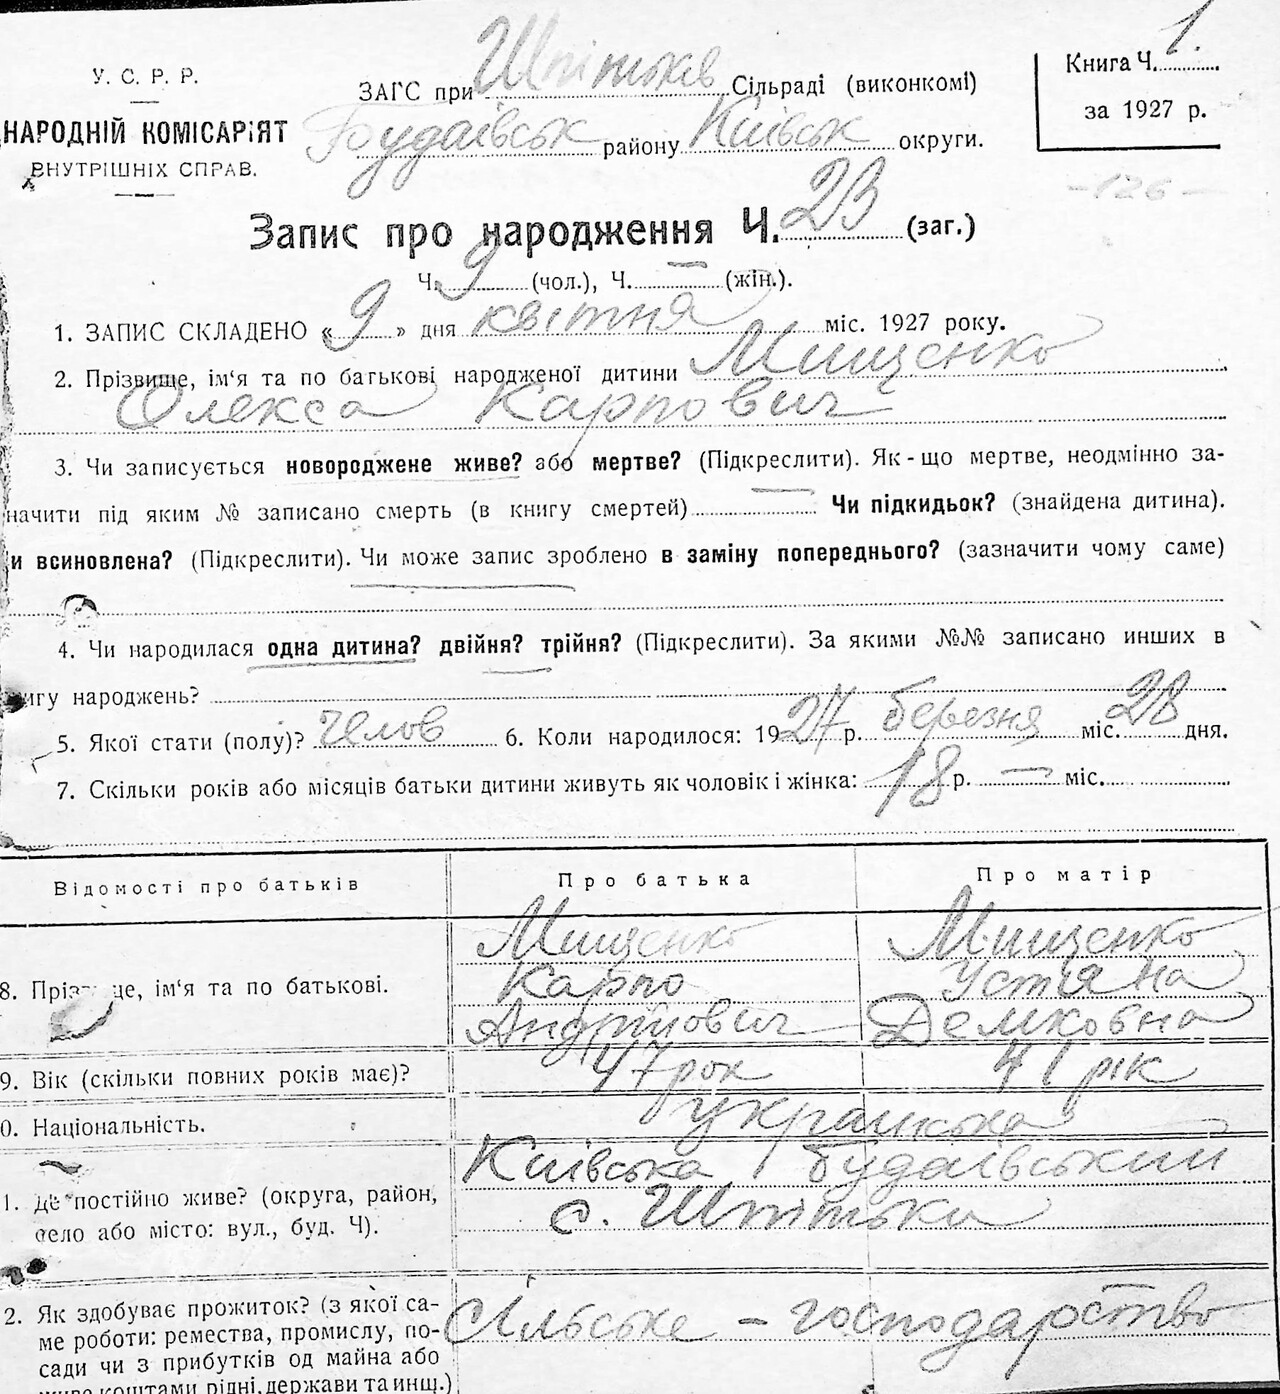 У. С. Р. Р.
НАРОДНІЙ КОМІСАРІЯТ
ВНУТРІШНІХ СПРАВ.
ЗАГС при Шпітьків Сільраді (виконкомі)
Будаївськ району Київськ округи.
Книга Ч. 1.
за 1927 р.
-126-
Запис про народження Ч. 23 (заг.)
Ч. 9 (чол.), Ч. — (жін.).
1. ЗАПИС СКЛАДЕНО « 9 » дня квітня міс. 1927 року.
2. Прізвище, ім'я та по батькові народженої дитини Мищенко
Олекса Карпович
3. Чи записується новороджене живе? або мертве? (Підкреслити). Як-що мертве, неодмінно за-
начити під яким № записано смерть (в книгу смертей) — Чи підкидьок? (знайдена дитина).
и всиновлена? (Підкреслити). Чи може запис зроблено в заміну попереднього? (зазначити чому саме)
4. Чи народилася одна дитина? двійня? трійня? (Підкреслити). За якими №№ записано инших в
игу народжень?
5. Якої стати (полу)? челов 6. Коли народилося: 1927 р. березня міс. 28 дня.
7. Скільки років або місяців батьки дитини живуть як чоловік і жінка: 18 р. — міс.
Відомості про батьків Про батька Про матір
8. Прізвище, ім'я та по батькові.
Мищенко Мищенко
Карпо Устяна
Андрійович Демковна
9. Вік (скільки повних років має)? 47 рок 41 рік
0. Національність. українська
1. Де постійно живе? (округа, район,
село або місто: вул., буд. Ч).
Київська Будаївський
с. Шпітьки
2. Як здобуває прожиток? (з якої са-
ме роботи: ремества, промислу, по-
сади чи з прибутків од майна або
живе коштами рідні, держави та инщ.)
Сільське - господарство